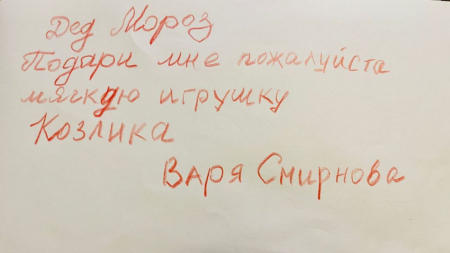 Дед Мороз
Подари мне пожалуйста
мягкую игрушку
Козлика
Варя Смирнова